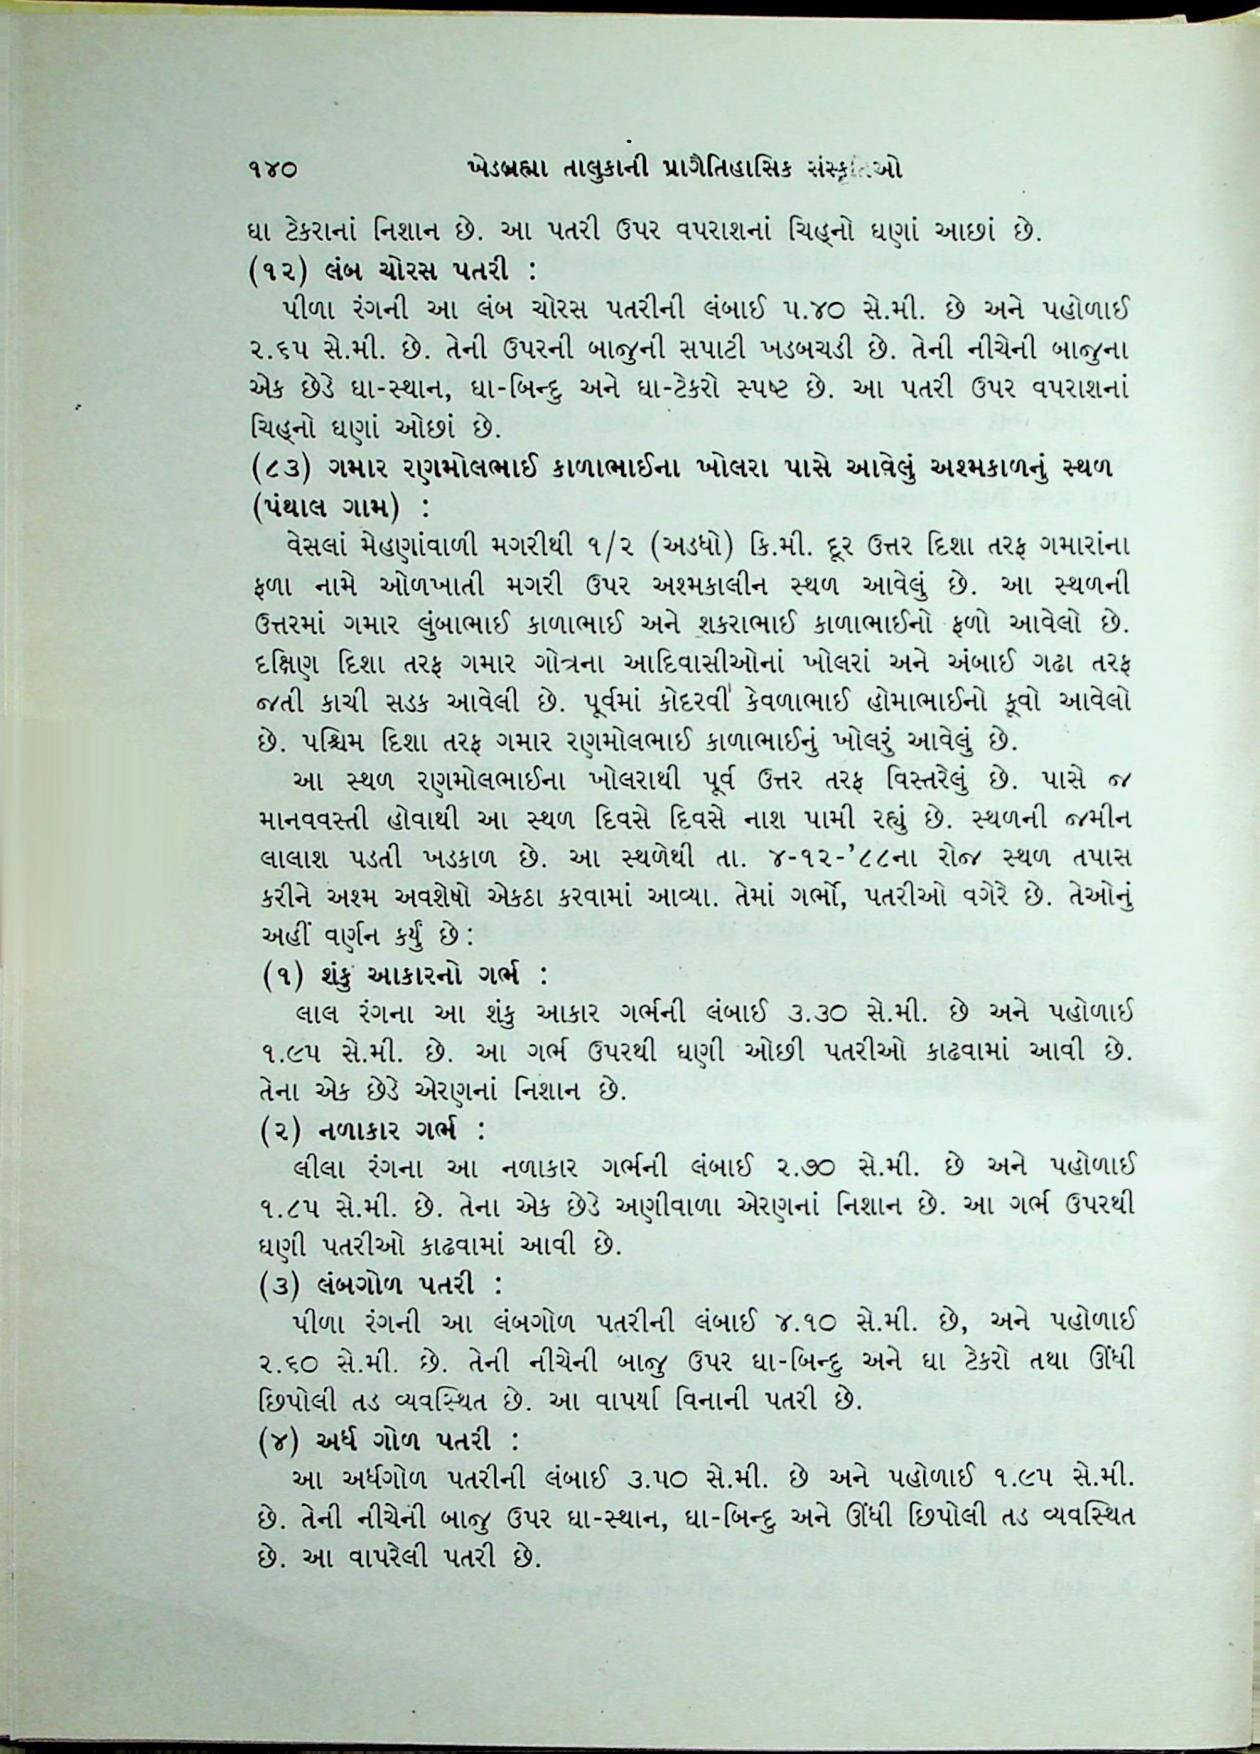 ૧૪૦ ખેડબ્રહ્મા તાલુકાની પ્રાગૈતિહાસિક સંસ્કૃતિઓ
ઘા ટેકરાનાં નિશાન છે. આ પતરી ઉપર વપરાશનાં ચિહ્નો ઘણાં આછાં છે.
(૧૨) લંબ ચોરસ પતરી :
પીળા રંગની આ લંબ ચોરસ પતરીની લંબાઈ ૫.૪૦ સે.મી. છે અને પહોળાઈ
૨.૬૫ સે.મી. છે. તેની ઉપરની બાજુની સપાટી ખડબચડી છે. તેની નીચેની બાજુના
એક છેડે ઘા-સ્થાન, ઘા-બિન્દુ અને ઘા-ટેકરો સ્પષ્ટ છે. આ પતરી ઉપર વપરાશનાં
ચિહ્નો ઘણાં ઓછાં છે.
(૮૩) ગમાર રણમોલભાઈ કાળાભાઈના ખોલરા પાસે આવેલું અશ્મકાળનું સ્થળ
(પંથાલ ગામ) :
વેસલાં મેહણાંવાળી મગરીથી ૧/૨ (અડધો) કિ.મી. દૂર ઉત્તર દિશા તરફ ગમારાંના
ફળા નામે ઓળખાતી મગરી ઉપર અશ્મકાલીન સ્થળ આવેલું છે. આ સ્થળની
ઉત્તરમાં ગમાર લુંબાભાઈ કાળાભાઈ અને શકરાભાઈ કાળાભાઈનો ફળો આવેલો છે.
દક્ષિણ દિશા તરફ ગમાર ગોત્રના આદિવાસીઓનાં ખોલરાં અને અંબાઈ ગઢા તરફ
જતી કાચી સડક આવેલી છે. પૂર્વમાં કોદરવી કેવળાભાઈ હોમાભાઈનો કૂવો આવેલો
છે. પશ્ચિમ દિશા તરફ ગમાર રણમોલભાઈ કાળાભાઈનું ખોલરું આવેલું છે.
આ સ્થળ રણમોલભાઈના ખોલરાથી પૂર્વ ઉત્તર તરફ વિસ્તરેલું છે. પાસે જ
માનવવસ્તી હોવાથી આ સ્થળ દિવસે દિવસે નાશ પામી રહ્યું છે. સ્થળની જમીન
લાલાશ પડતી ખડકાળ છે. આ સ્થળેથી તા. ૪-૧૨-'૮૮ના રોજ સ્થળ તપાસ
કરીને અશ્મ અવશેષો એકઠા કરવામાં આવ્યા. તેમાં ગર્ભો, પતરીઓ વગેરે છે. તેઓનું
અહીં વર્ણન કર્યું છે:
(૧) શંકુ આકારનો ગર્ભ :
લાલ રંગના આ શંકુ આકાર ગર્ભની લંબાઈ ૩.૩૦ સે.મી. છે અને પહોળાઈ
૧.૯૫ સે.મી. છે. આ ગર્ભ ઉપરથી ઘણી ઓછી પતરીઓ કાઢવામાં આવી છે.
તેના એક છેડે એરણનાં નિશાન છે.
(૨) નળાકાર ગર્ભ :
લીલા રંગના આ નળાકાર ગર્ભની લંબાઈ ૨.૭૦ સે.મી. છે અને પહોળાઈ
૧.૮૫ સે.મી. છે. તેના એક છેડે અણીવાળા એરણનાં નિશાન છે. આ ગર્ભ ઉપરથી
ઘણી પતરીઓ કાઢવામાં આવી છે.
(૩) લંબગોળ પતરી :
પીળા રંગની આ લંબગોળ પતરીની લંબાઈ ૪.૧૦ સે.મી. છે, અને પહોળાઈ
૨.૬૦ સે.મી. છે. તેની નીચેની બાજુ ઉપર ઘા-બિન્દુ અને ઘા ટેકરો તથા ઊંધી
છિપોલી તડ વ્યવસ્થિત છે. આ વાપર્યા વિનાની પતરી છે.
(૪) અર્ધ ગોળ પતરી :
આ અર્ધગોળ પતરીની લંબાઈ ૩.૫૦ સે.મી. છે અને પહોળાઈ ૧.૯૫ સે.મી.
છે. તેની નીચેની બાજુ ઉપર ઘા-સ્થાન, ઘા-બિન્દુ અને ઊંધી છિપોલી તડ વ્યવસ્થિત
છે. આ વાપરેલી પતરી છે.